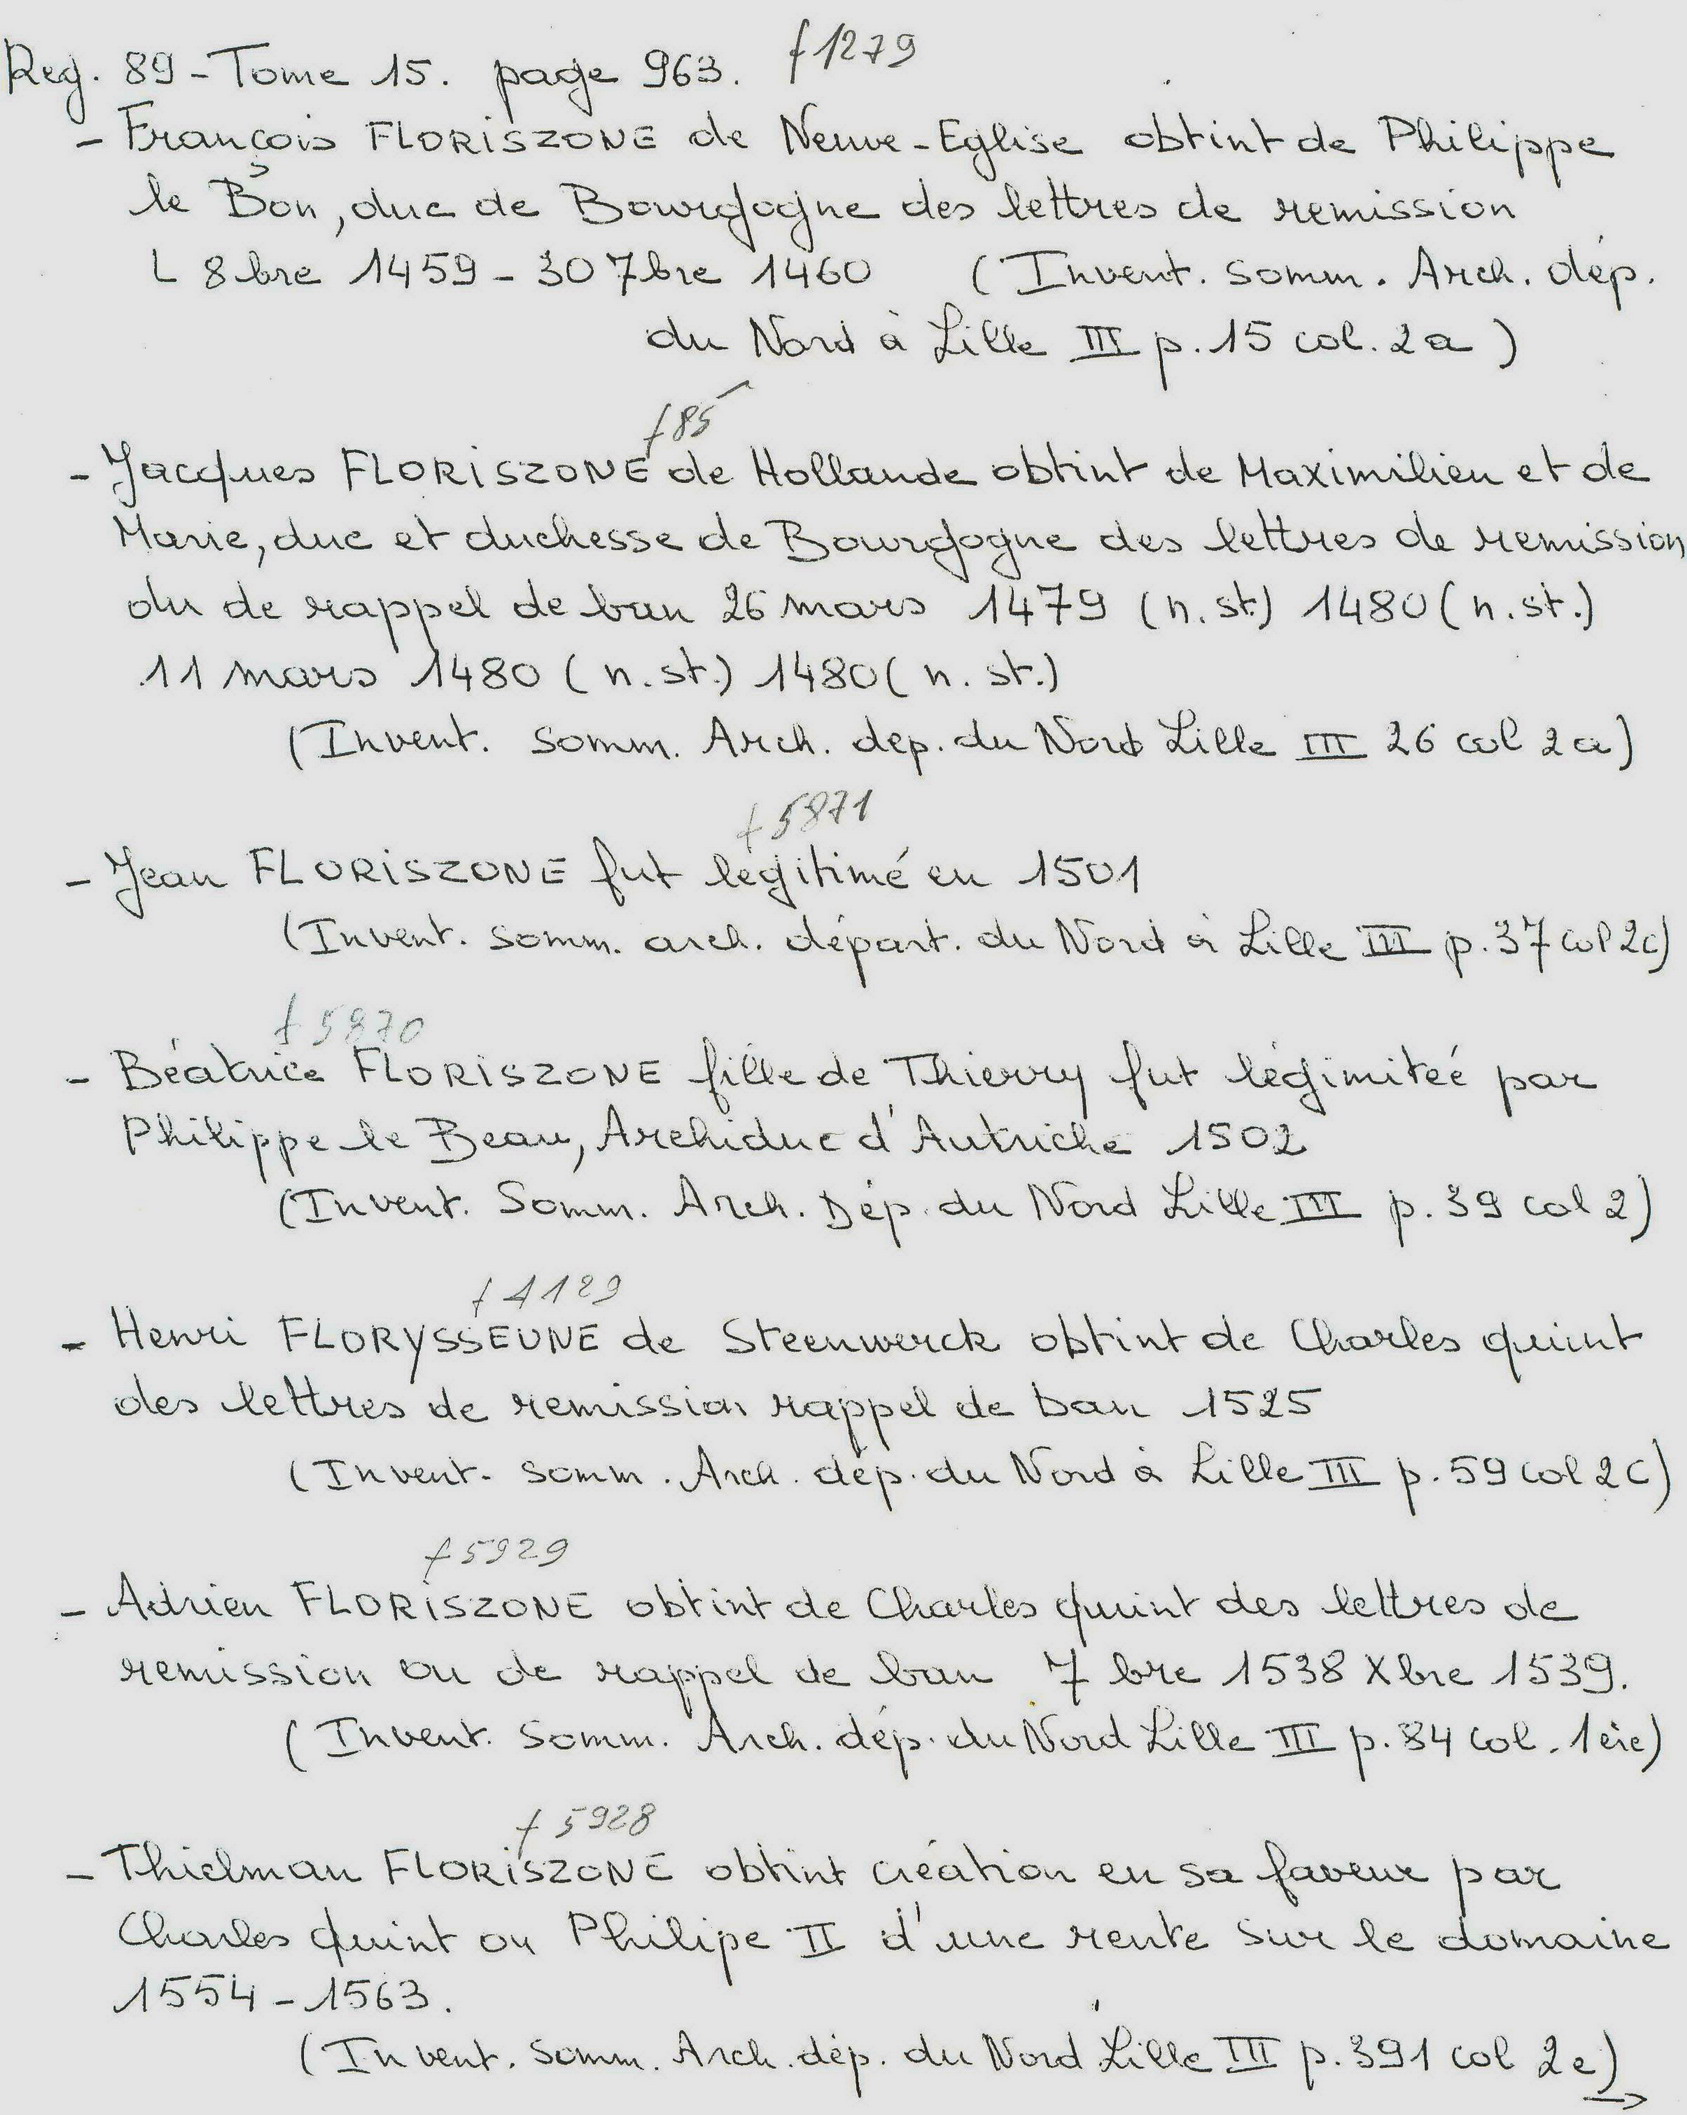 Reg. 89 - Tome 15. page 963. f 1279
- François FLORISZONE de Neuve-Eglise obtint de Philippe
le Bon, duc de Bourgogne des lettres de remission
L 8bre 1459 - 30 7bre 1460 (Invent. Somm. Arch. dép.
du Nord à Lille III p. 15 col. 2a)
f 85
- Jacques FLORISZONE de Hollande obtint de Maximilien et de
Marie, duc et duchesse de Bourgogne des lettres de remission
du de rappel de ban 26 mars 1479 (n. st.) 1480 (n. st.)
11 mars 1480 (n. st.) 1480 (n. st.)
(Invent. Somm. Arch. dep. du Nord Lille III 26 col 2a)
f 5871
- Jean FLORISZONE fut légitimé en 1501
(Invent. somm. arch. départ. du Nord à Lille III p. 37 col 2c)
f 5870
- Béatrice FLORISZONE fille de Thierry fut légimiteé par
Philippe le Beau, Archiduc d'Autriche 1502
(Invent. Somm. Arch. Dép. du Nord Lille III p. 39 col 2)
f 4129
- Henri FLORYSSEUNE de Steenwerck obtint de Charles quint
des lettres de remission rappel de ban 1525
(Invent. somm. Arch. dép. du Nord à Lille III p. 59 col 2c)
f 5929
- Adrien FLORISZONE obtint de Charles quint des lettres de
remission ou de rappel de ban 7 bre 1538 Xbre 1539.
(Invent. Somm. Arch. dép. du Nord Lille III p. 84 col. 1ère)
f 5928
- Thielman FLORISZONE obtint création en sa faveur par
Charles quint ou Philipe II d'une rente sur le domaine
1554 - 1563.
(Invent. Somm. Arch. dép. du Nord Lille III p. 391 col 2e)
→